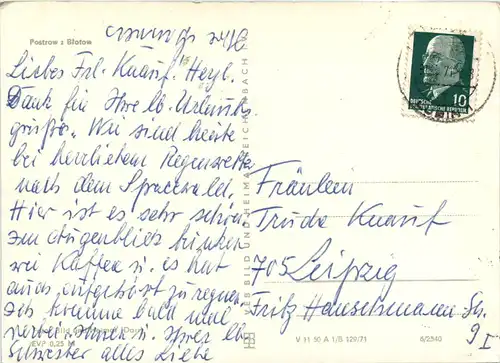 Postrow z Błotow
Ihre
Liebes Frl. Knauf. Heyl.
Dank für Ihre lb. Urlaubs
grüße. Wir sind heute
bei herrlichem Regenwetter
nach dem Spreewald.
Hier ist es sehr schön
Im Augenblick trinken
wir Kaffee u. es hat
auch aufgehört zu regnen.
Ich komme bald mal
vorbei. Ihnen u. Ihrer lb
Schwester alles Liebe
EVP 0,25 M
VEB BILD UND HEIMAT REICHENBACH
10
DEUTSCHE
DEMOKRATISCHE REPUBLIK
Fräulein
Trude Knauf
705 Leipzig
Fritz Hanschmann Str.
9 I
V 11 50 A 1/B 129/71
6/2540